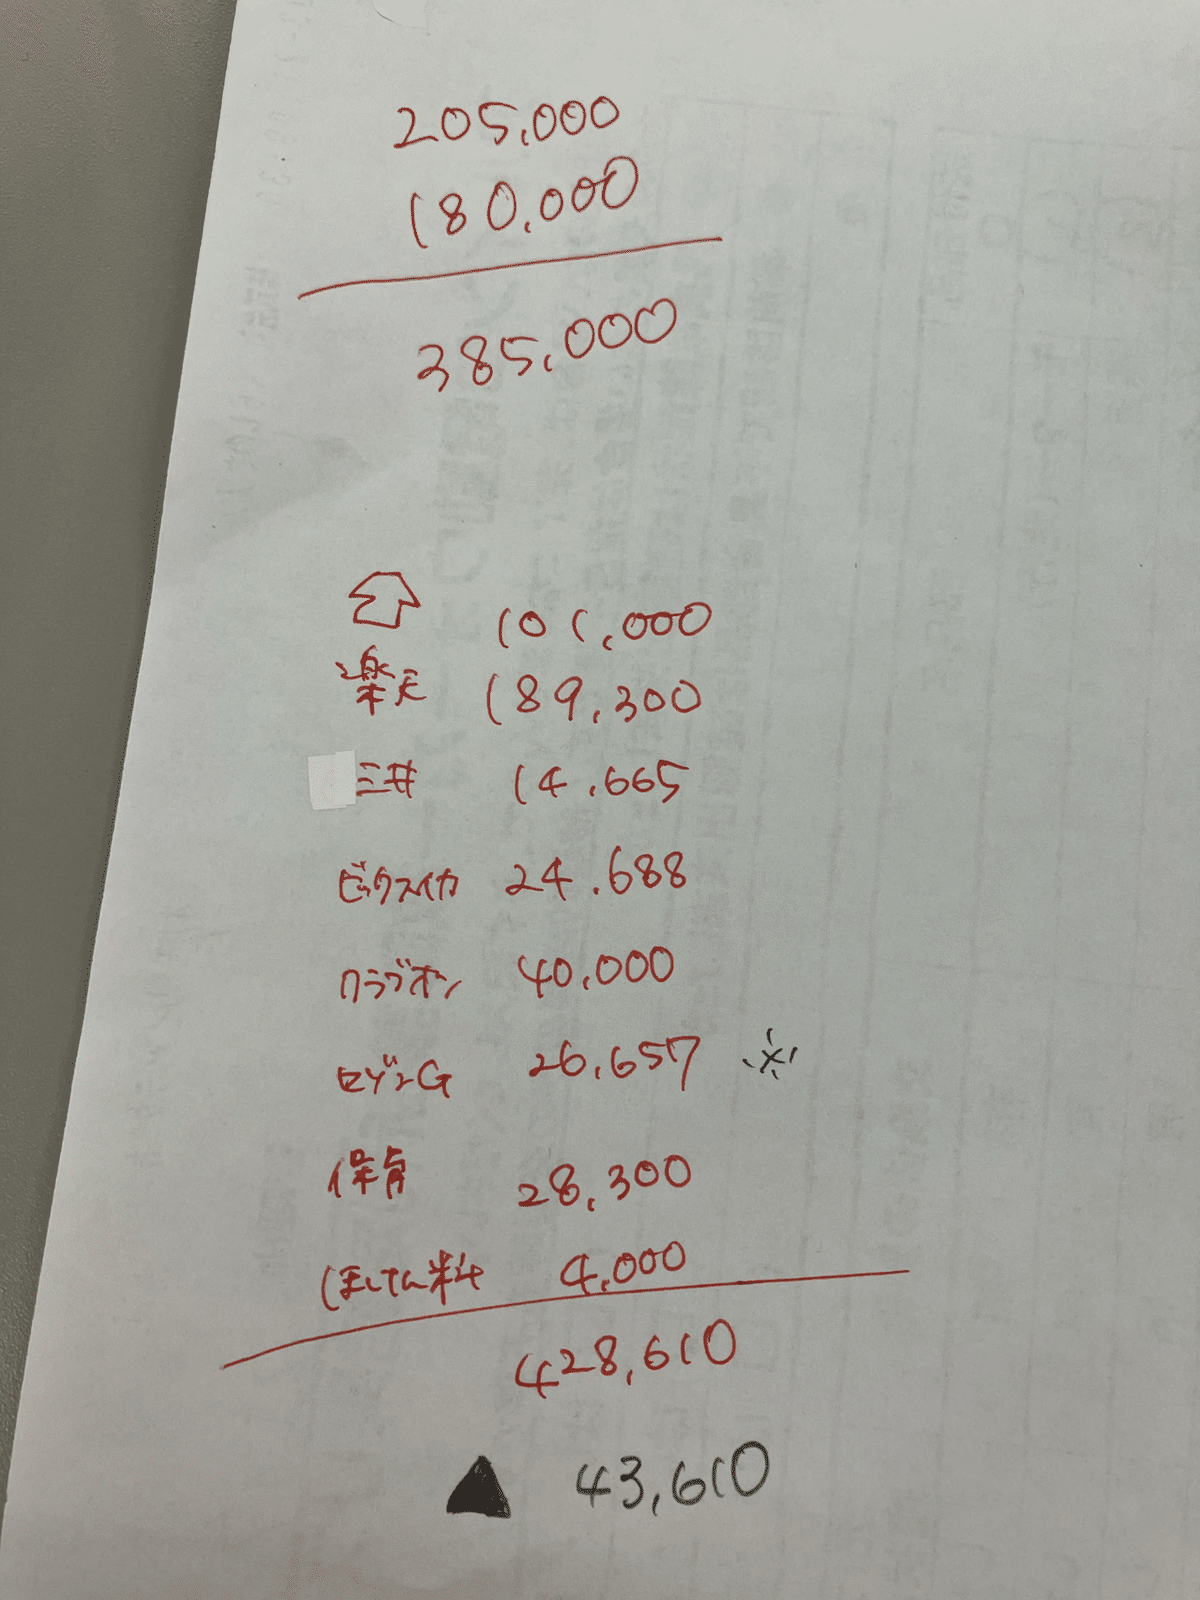 205,000
180,000
385,000
101,000
楽天 189,300
三井 14.665
ビックスイカ 24.688
クラブオン 40,000
セゾンG 26,657 ※
保育 28,300
4,000
428,610
▲ 43,610